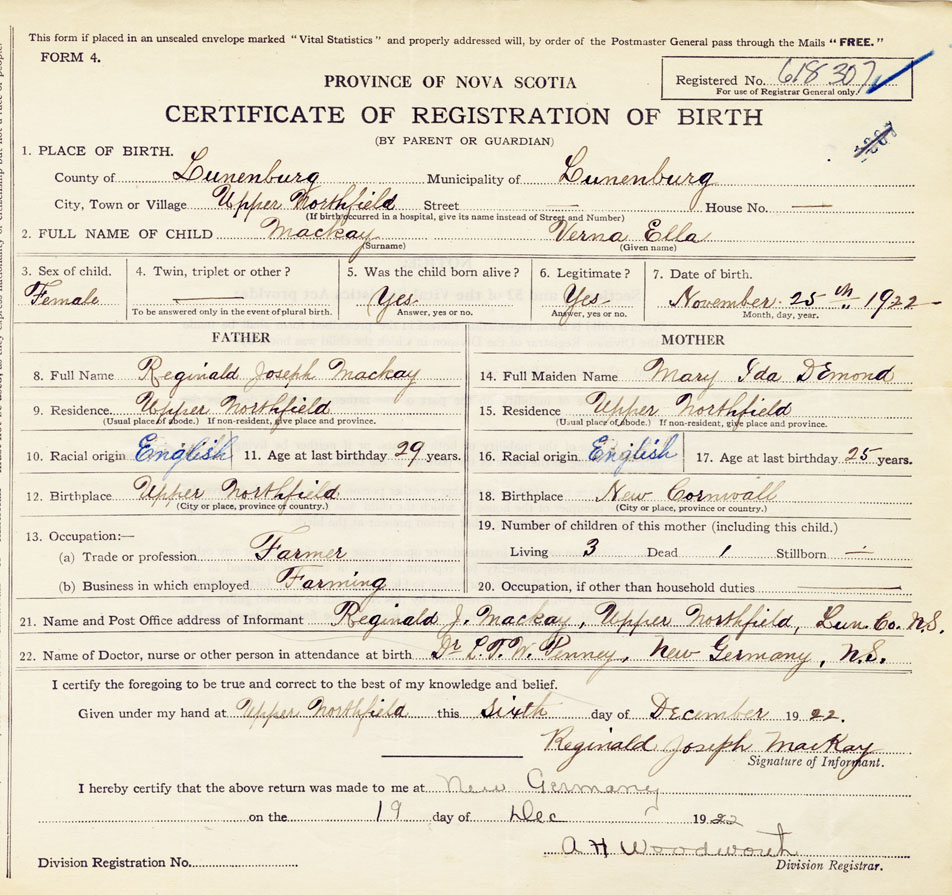 This form if placed in an unsealed envelope marked "Vital Statistics" and properly addressed will, by order of the Postmaster General pass through the Mails "FREE."
FORM 4.
Registered No. 618307
For use of Registrar General only.
PROVINCE OF NOVA SCOTIA
CERTIFICATE OF REGISTRATION OF BIRTH
(BY PARENT OR GUARDIAN)
1. PLACE OF BIRTH.
County of Lunenburg Municipality of Lunenburg
City, Town or Village Upper Northfield Street — House No. —
(If birth occurred in a hospital, give its name instead of Street and Number)
2. FULL NAME OF CHILD Mackay Verna Ella
(Surname) (Given name)
3. Sex of child. 4. Twin, triplet or other? 5. Was the child born alive? 6. Legitimate? 7. Date of birth.
Female — Yes- Yes- November 25th 1922-
To be answered only in the event of plural birth. Answer, yes or no. Answer, yes or no. Month, day, year.
FATHER MOTHER
8. Full Name Reginald Joseph Mackay 14. Full Maiden Name Mary Ida DEmond
9. Residence. Upper Northfield 15. Residence Upper Northfield
(Usual place of abode.) If non-resident, give place and province. (Usual place of abode.) If non-resident, give place and province.
10. Racial origin English 11. Age at last birthday 29 years. 16. Racial origin English 17. Age at last birthday 25 years.
12. Birthplace Upper Northfield 18. Birthplace New Cornwall
(City or place, province or country.) (City or place, province or country.)
13. Occupation:— 19. Number of children of this mother (including this child.)
(a) Trade or profession Farmer Living 3 Dead 1 Stillborn —
(b) Business in which employed Farming 20. Occupation, if other than household duties —
21. Name and Post Office address of Informant Reginald J. Mackay, Upper Northfield, Lun. Co. N.S.
22. Name of Doctor, nurse or other person in attendance at birth Dr L.T.W. Penney, New Germany, N.S.
I certify the foregoing to be true and correct to the best of my knowledge and belief.
Given under my hand at Upper Northfield this Sixth day of December 1922.
Reginald Joseph MacKay
Signature of Informant.
I hereby certify that the above return was made to me at New Germany
on the 19 day of Dec 1922
A H Woodworth
Division Registration No. Division Registrar.